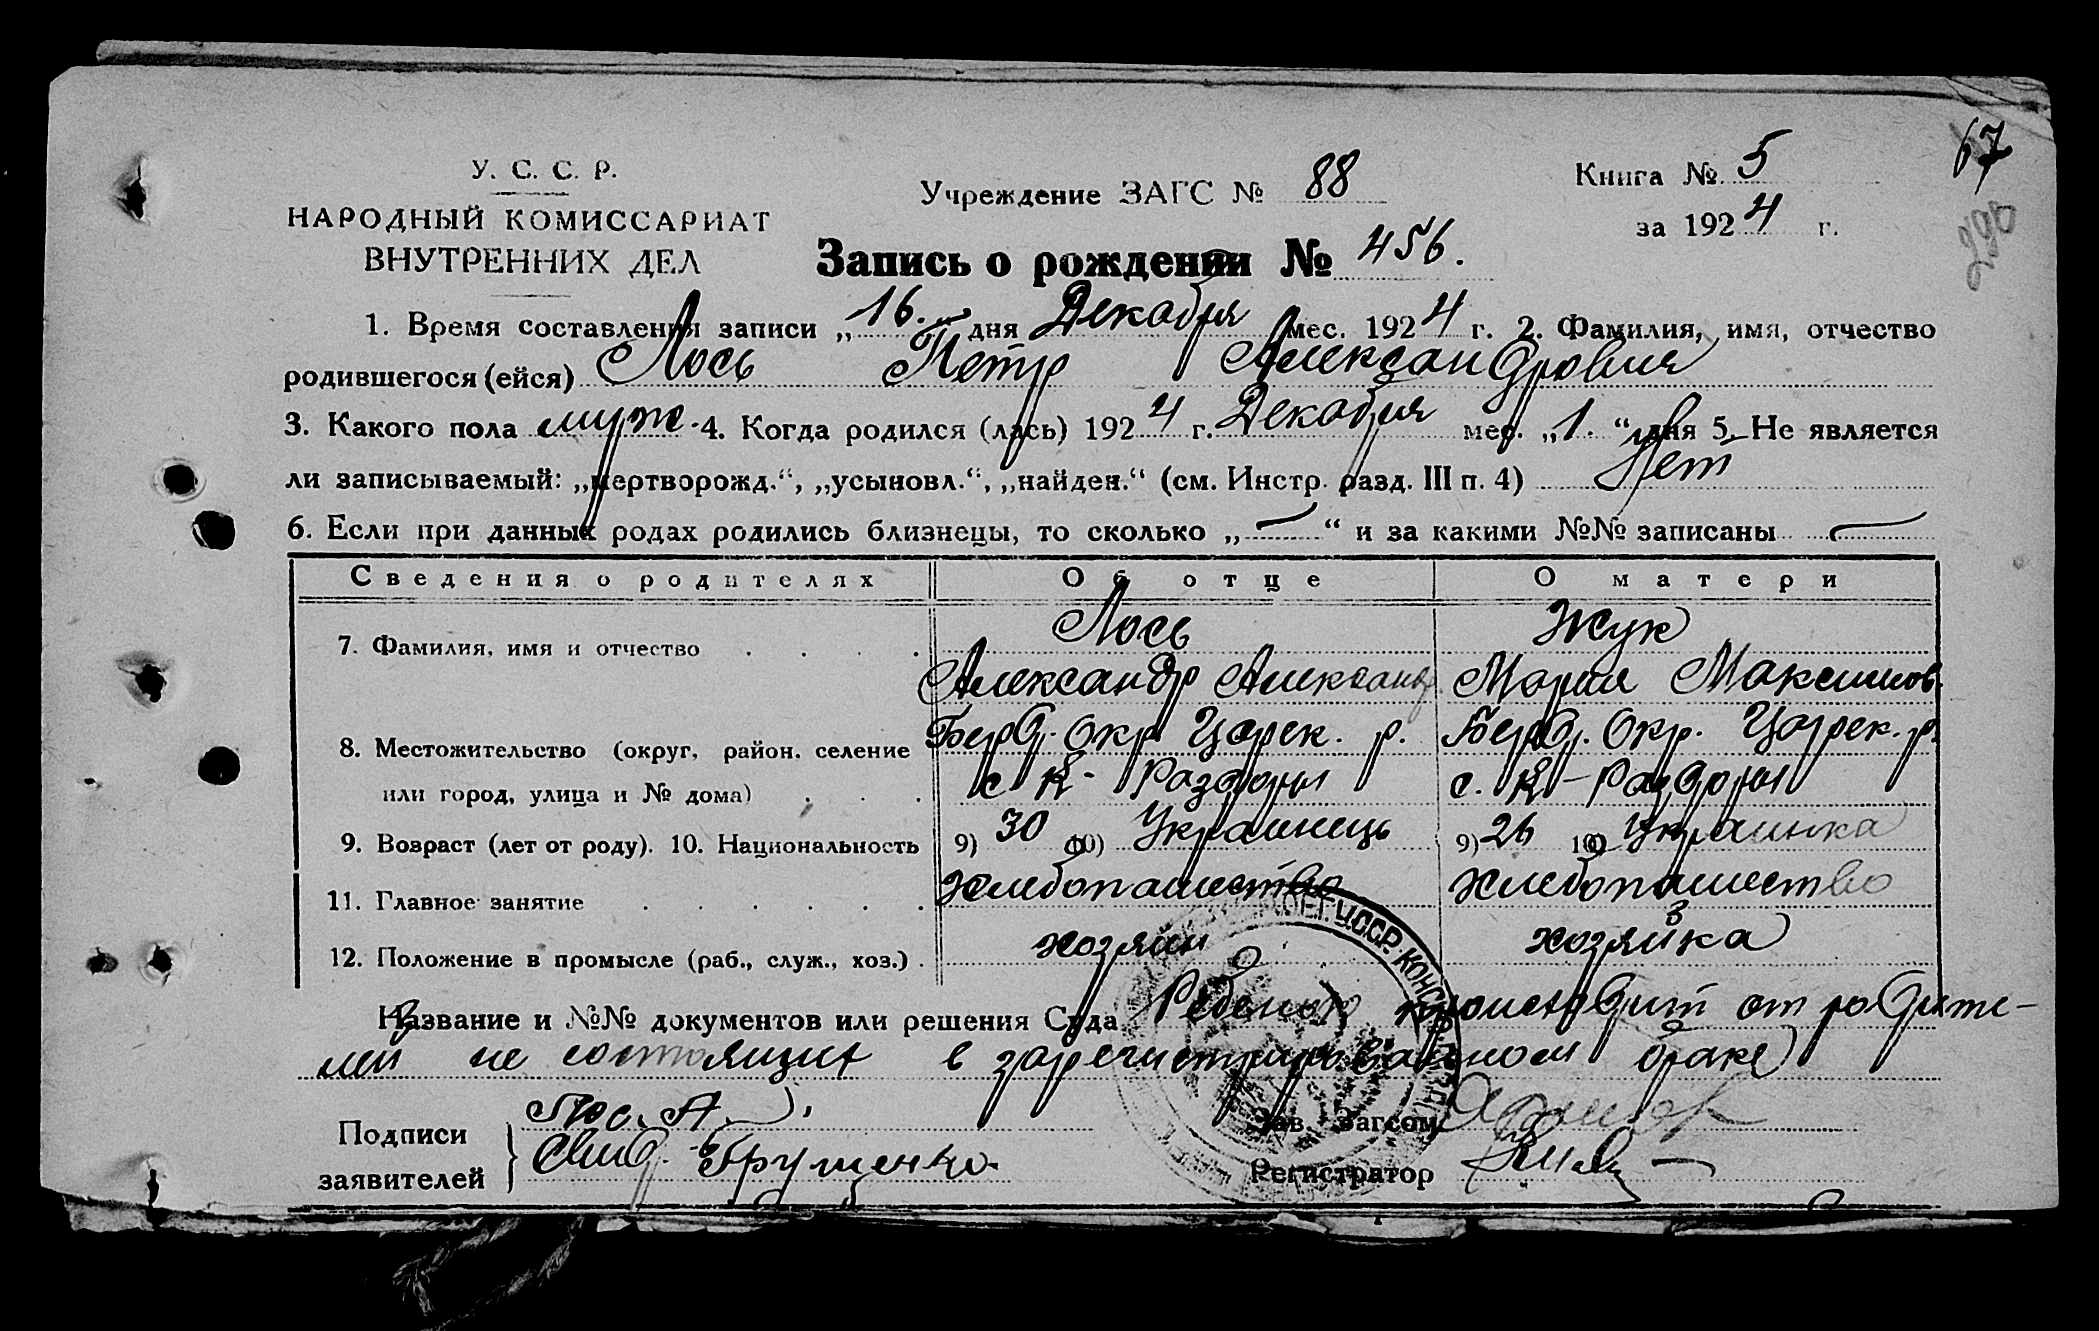 У. С. С. Р.
НАРОДНЫЙ КОМИССАРИАТ
ВНУТРЕННИХ ДЕЛ
Учреждение ЗАГС № 88
Книга № 5
за 1924 г.
67
290
Запись о рождении № 456.
1. Время составления записи „16.“ дня Декабря мес. 1924 г. 2. Фамилия, имя, отчество
родившегося (ейся) Лось Петр Александрович
3. Какого пола муж. 4. Когда родился (лась) 1924 г. Декабря мес. „1.“ дня 5. Не является
ли записываемый: „мертворожд.“, „усыновл.“, „найден.“ (см. Инстр. разд. III п. 4) Нет
6. Если при данных родах родились близнецы, то сколько „—“ и за какими №№ записаны —
Сведения о родителях Об отце О матери
7. Фамилия, имя и отчество Лось Жук
Александр Александр. Мария Максимов.
8. Местожительство (округ, район, селение Берд. Окр. Царек. р. Берд. Окр. Царек. р.
или город, улица и № дома) с К-Раздоры с. К-Раздоры
9. Возраст (лет от роду). 10. Национальность 9) 30 10) Украинець 9) 26 10) Украинка
11. Главное занятие Хлебопашество Хлебопашество
12. Положение в промысле (раб., служ., хоз.) хозяин хозяйка
Название и №№ документов или решения Суда Ребенок происходит от родите-
лей не состоящих в зарегистрированном браке
Подписи
заявителей
Лос. А.
Свид. Грущенко.
Зав. Загсом
Регистратор
У.С.С.Р.